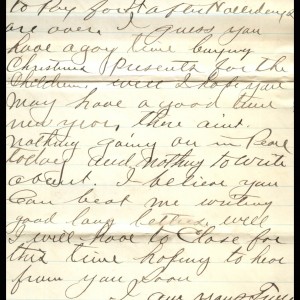 to Pay for it after Holledays
are over. I guess you
have a gay time buying
Christmas Presents for the
Children. well I hope you
may have a good time
new year, there aint
nothing going on in
today and nothing to write
about. I believe you
can beat me writing
good long letters. will
I will have to close for
this time hoping to hear
from you soon
I am yours